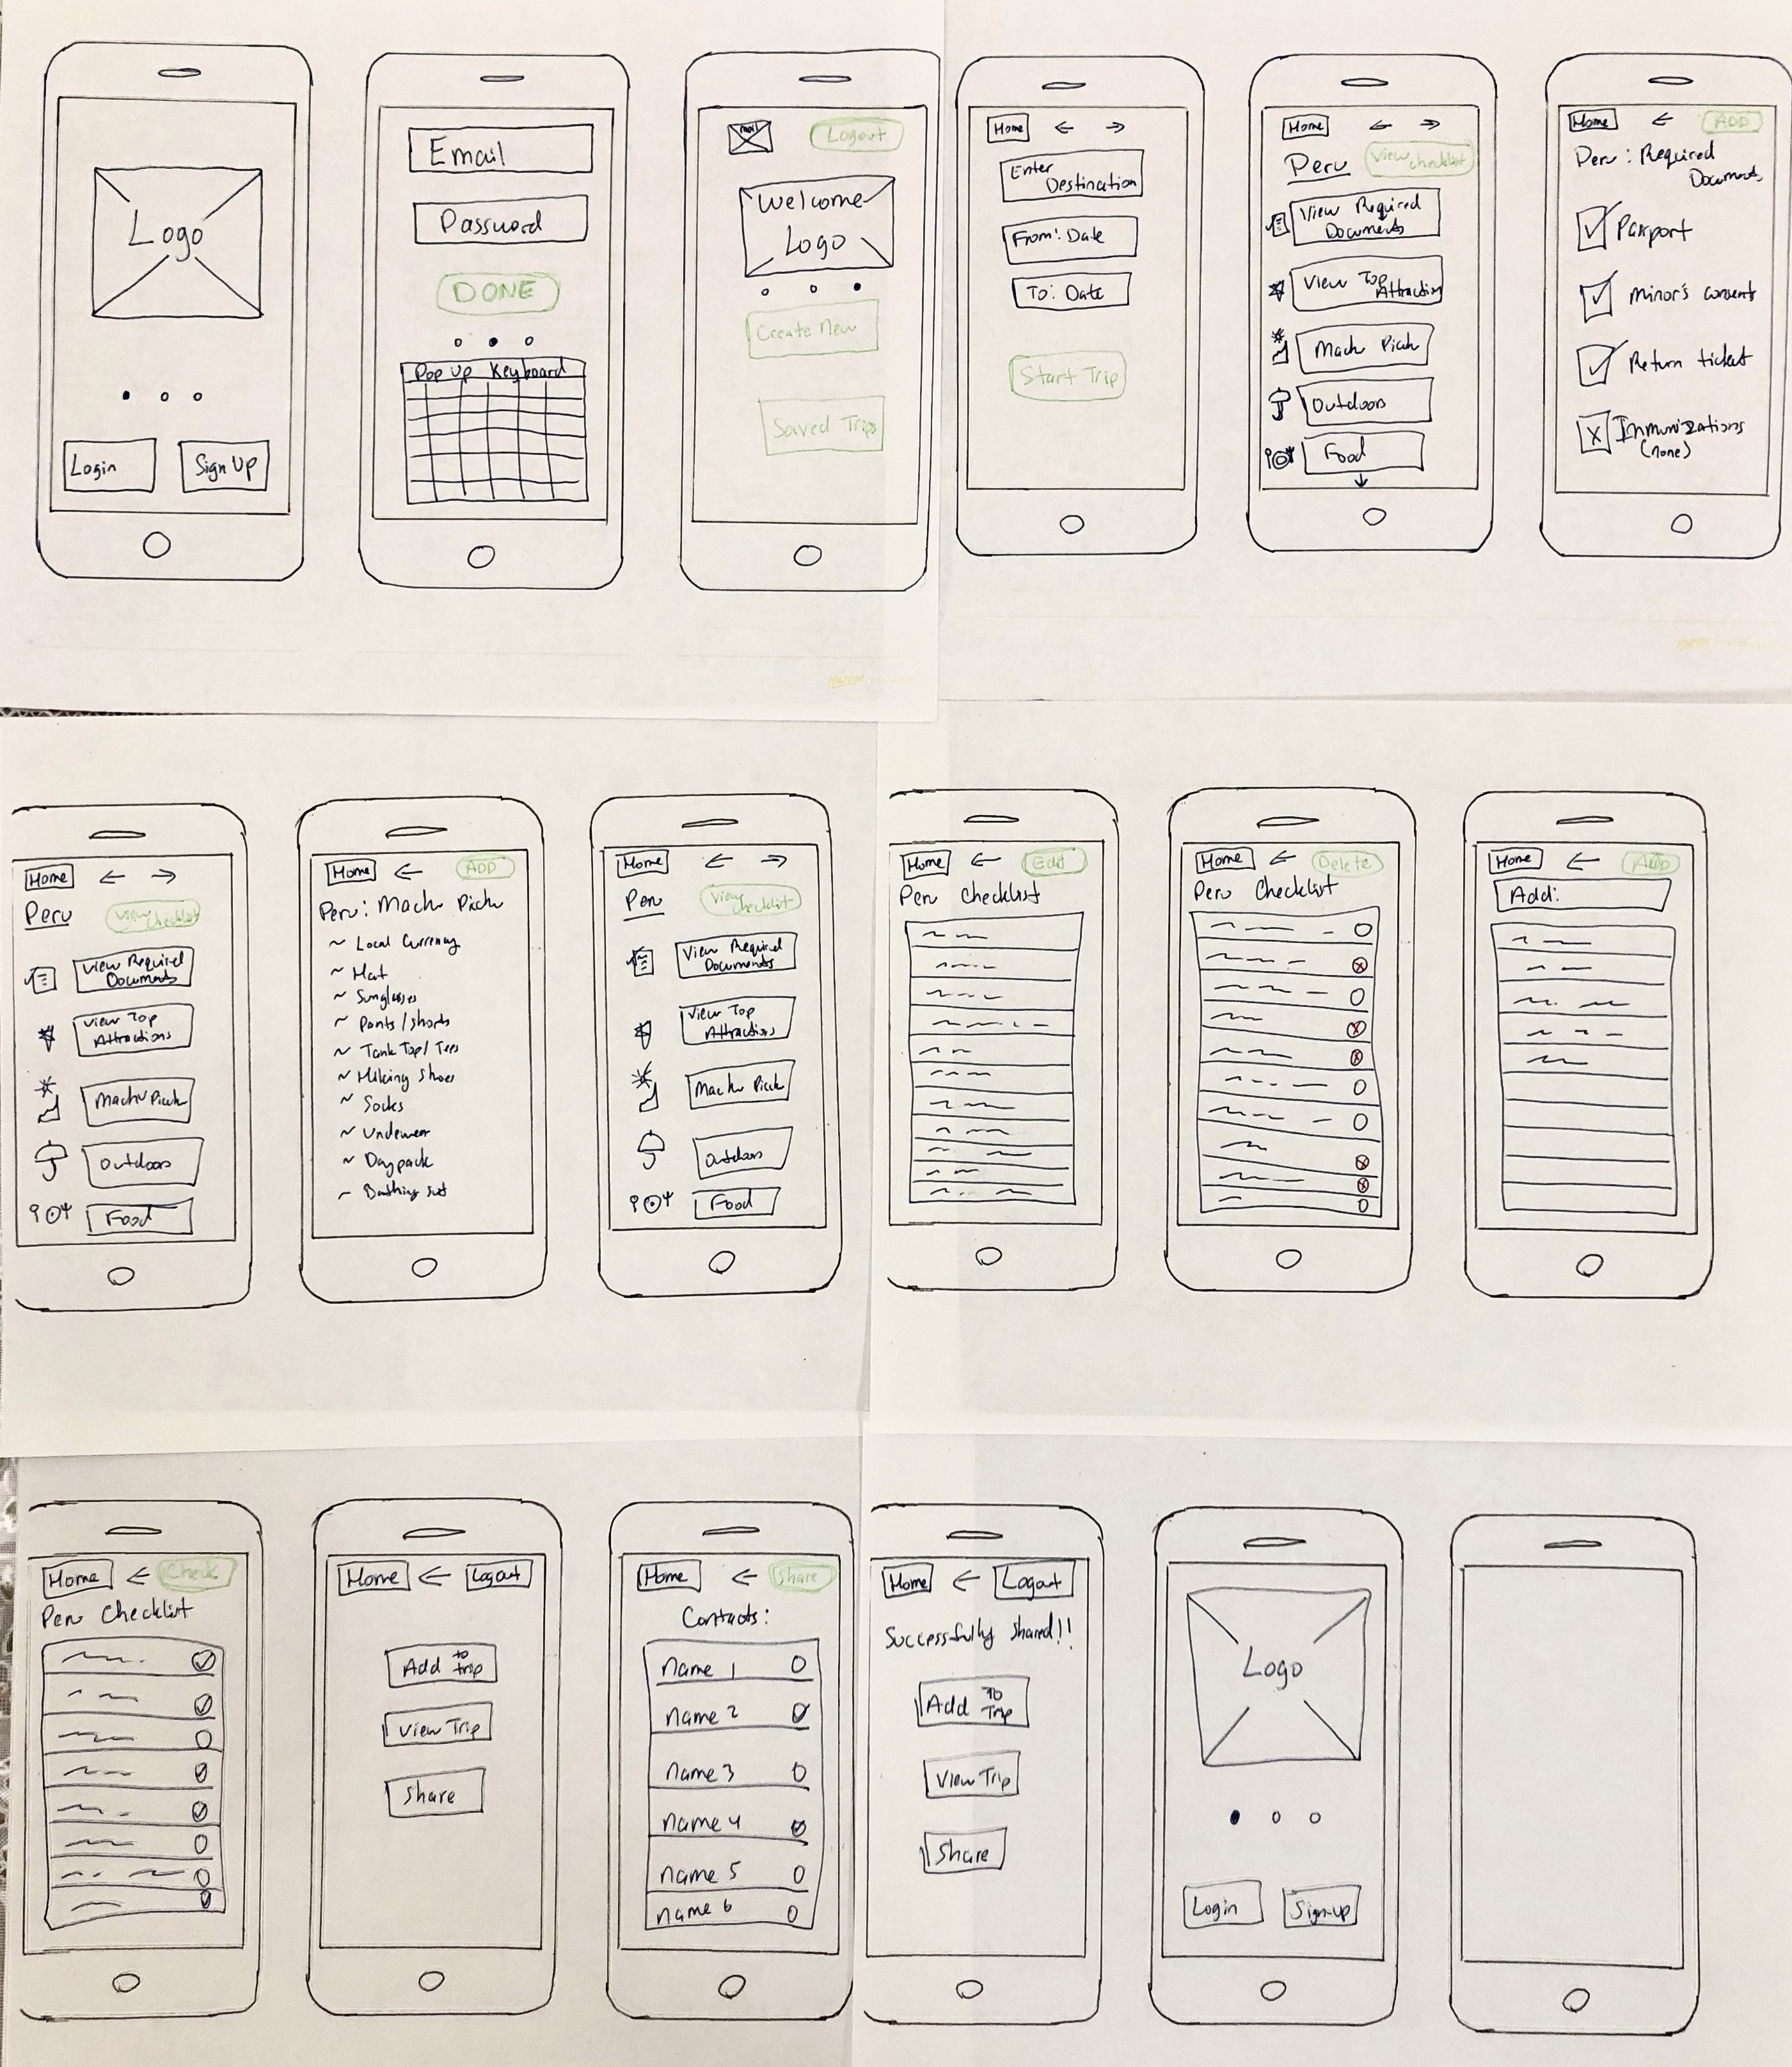 Logo
Login
Sign Up
Email
Password
DONE
Pop Up Keyboard
Logout
Welcome
Logo
Create New
Saved Trips
Home
Enter
Destination
From: Date
To: Date
Start Trip
Home
Peru
View
checklist
View Required
Documents
View Top
Attraction
Machu Picch
Outdoors
Food
Home
ADD
Peru: Required
Documents
Passport
Minor's consent
Return ticket
Immunizations
(none)
Home
Peru
View
checklist
View Required
Documents
View Top
Attractions
Machu Picch
Outdoors
Food
Home
ADD
Peru: Machu Picchu
~ Local Currency
~ Hat
~ Sunglasses
~ Pants/shorts
~ Tank Top/Tees
~ Hiking Shoes
~ Socks
~ Underwear
~ Daypack
~ Bathing suit
Home
Peru
View
checklist
View Required
Documents
View Top
Attractions
Machu Picch
Outdoors
Food
Home
Edit
Peru Checklist
Home
Delete
Peru Checklist
Home
Add
Add:
Home
Check
Peru Checklist
Home
Logout
Add to
trip
View Trip
Share
Home
Share
Contacts:
name 1
name 2
name 3
name 4
name 5
name 6
Home
Logout
Successfully shared!!
Add To
Trip
View Trip
Share
Logo
Login
Sign-up